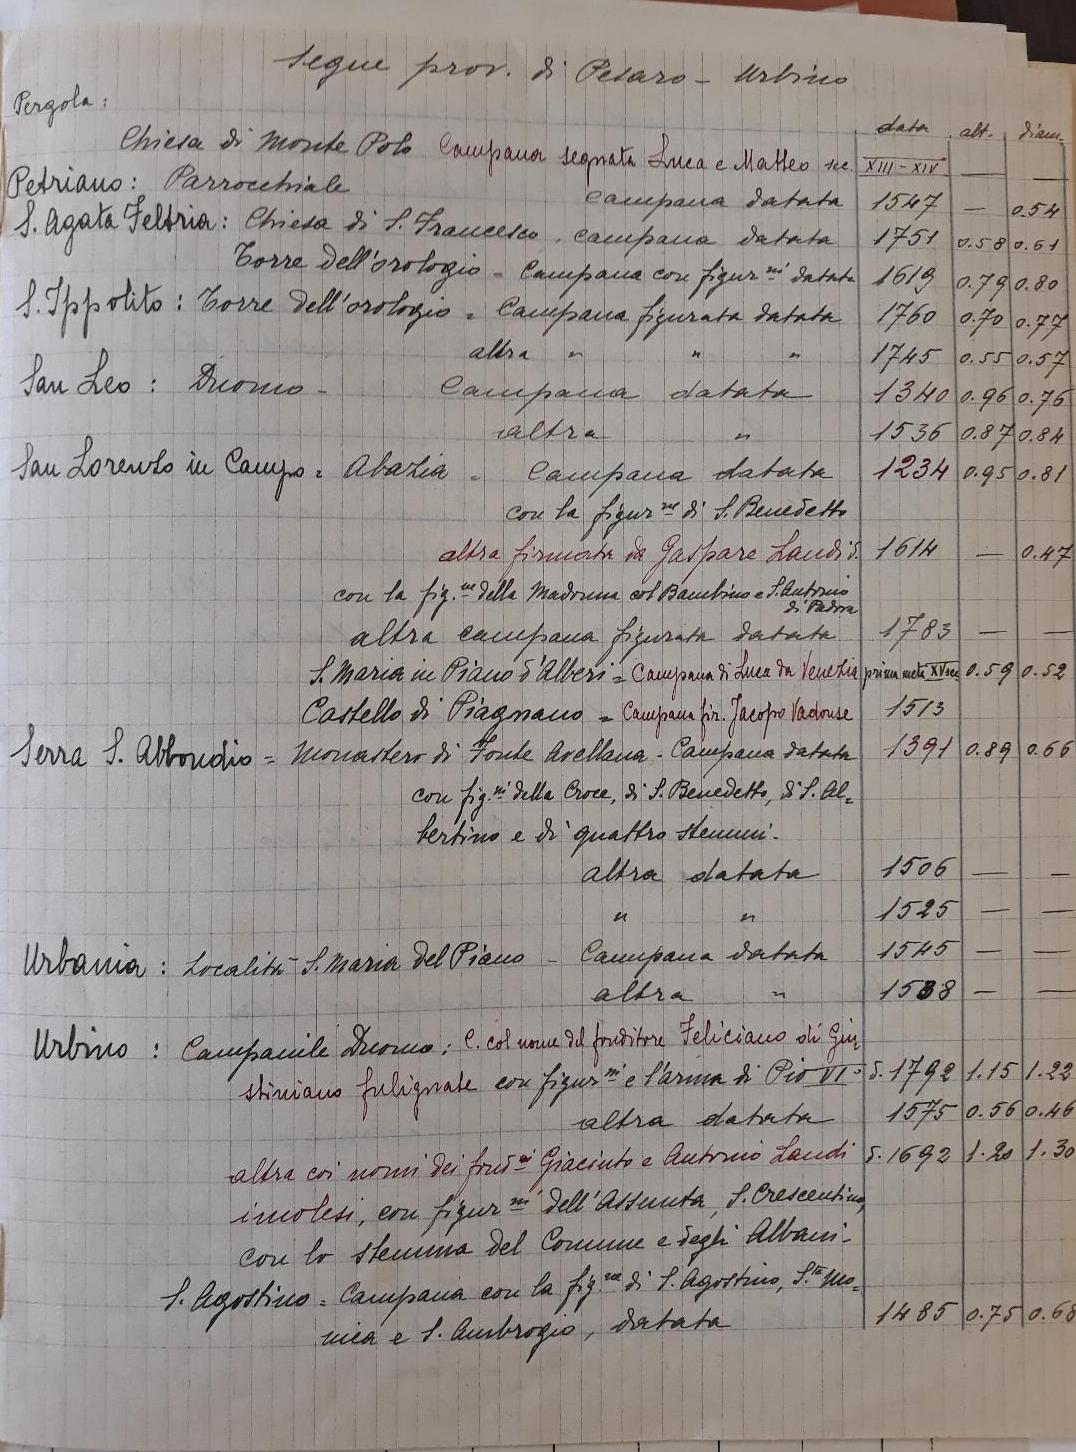 Segue prov. di Pesaro - Urbino
Pergola:
data alt. diam.
Chiesa di Monte Polo Campana segnata Luca e Matteo sec. XIII-XIV — —
Petriano: Parrocchiale campana datata 1547 — 0.54
S. Agata Feltria: Chiesa di S. Francesco, campana datata 1751 0.58 0.61
Torre dell'orologio = Campana con figur.ni datata 1619 0.79 0.80
S. Ippolito: Torre dell'orologio = Campana figurata datata 1760 0.70 0.77
altra " " " 1745 0.55 0.57
San Leo: Duomo - Campana datata 1340 0.96 0.76
altra " 1536 0.87 0.84
San Lorenzo in Campo = Abazia = Campana datata 1234 0.95 0.81
con la figur.ne di S. Benedetto
altra firmata da Gaspare Landi d. 1614 — 0.47
con la fig.ne della Madonna col Bambino e S. Antonio
di Padova
altra campana figurata datata 1783 — —
S. Maria in Piano d'Alberi = Campana di Luca da Venezia prima metà XV sec. 0.59 0.52
Castello di Piagnano = Campana fir. Jacopo Vadonse 1513
Serra S. Abbondio = Monastero di Fonte Avellana - Campana datata 1391 0.89 0.66
con fig.ni della Croce, di S. Benedetto, di S. Al=
bertino e di quattro stemmi.
altra datata 1506 — —
" " 1525 — —
Urbania: Località S. Maria del Piano - Campana datata 1545 — —
altra " 1538 — —
Urbino: Campanile Duomo: C. col nome del fonditore Feliciano di Giu
stiniano fulignate con figur.ni e l'arma di Pio VI - d. 1792 1.15 1.22
altra datata 1575 0.56 0.46
altra coi nomi dei fond.ri Giacinto e Antonio Landi d. 1692 1.20 1.30
imolesi, con figur.ni dell'Assunta, S. Crescentino,
con lo stemma del Comune e degli Albani-
S. Agostino = Campana con la fig.ne di S. Agostino, S.ta Mo=
nica e S. Ambrogio, datata 1485 0.75 0.68